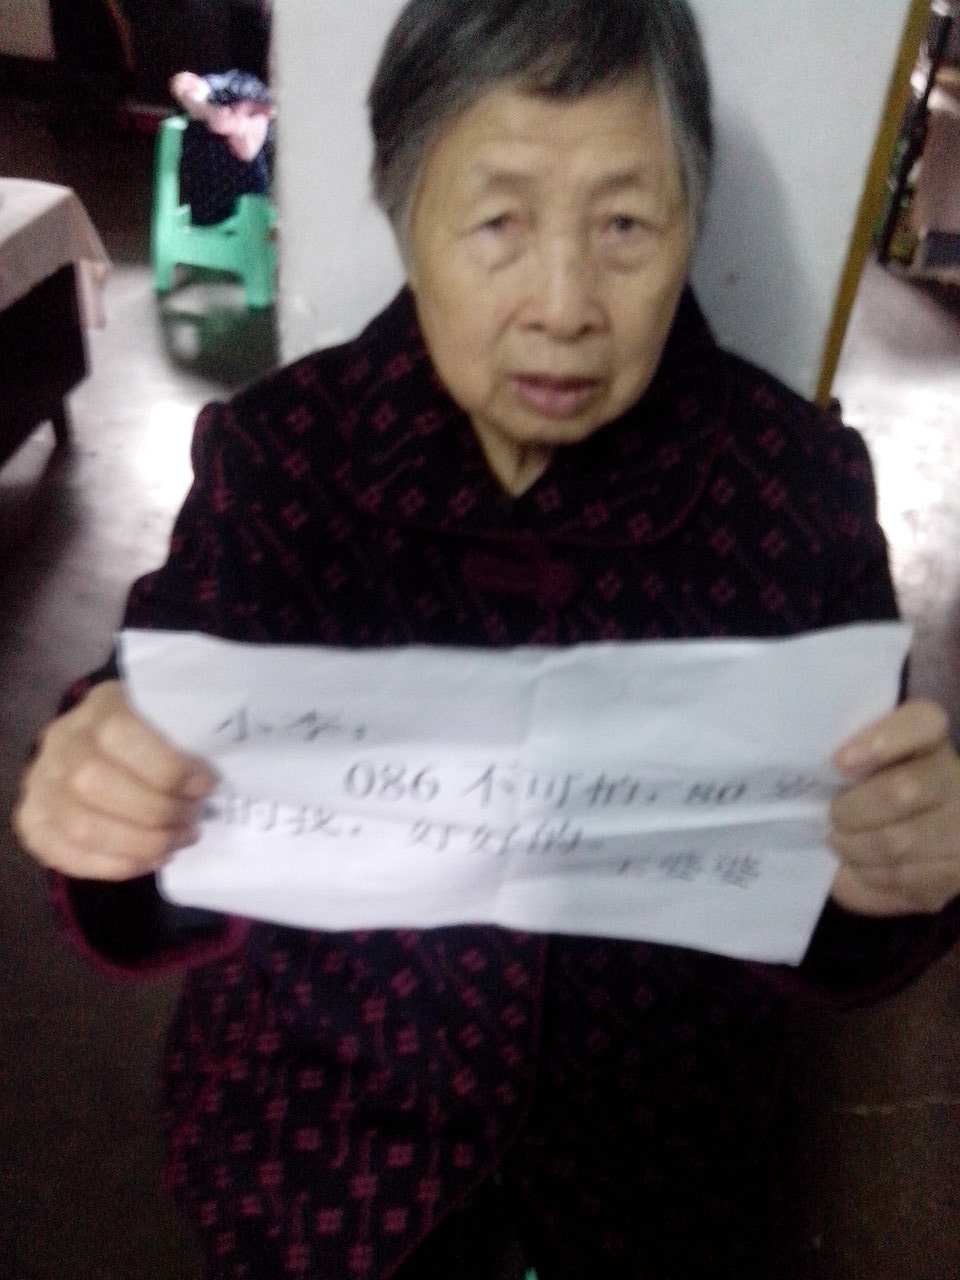 小李：
086 不可怕，80 岁
的我，好好的。
婆婆